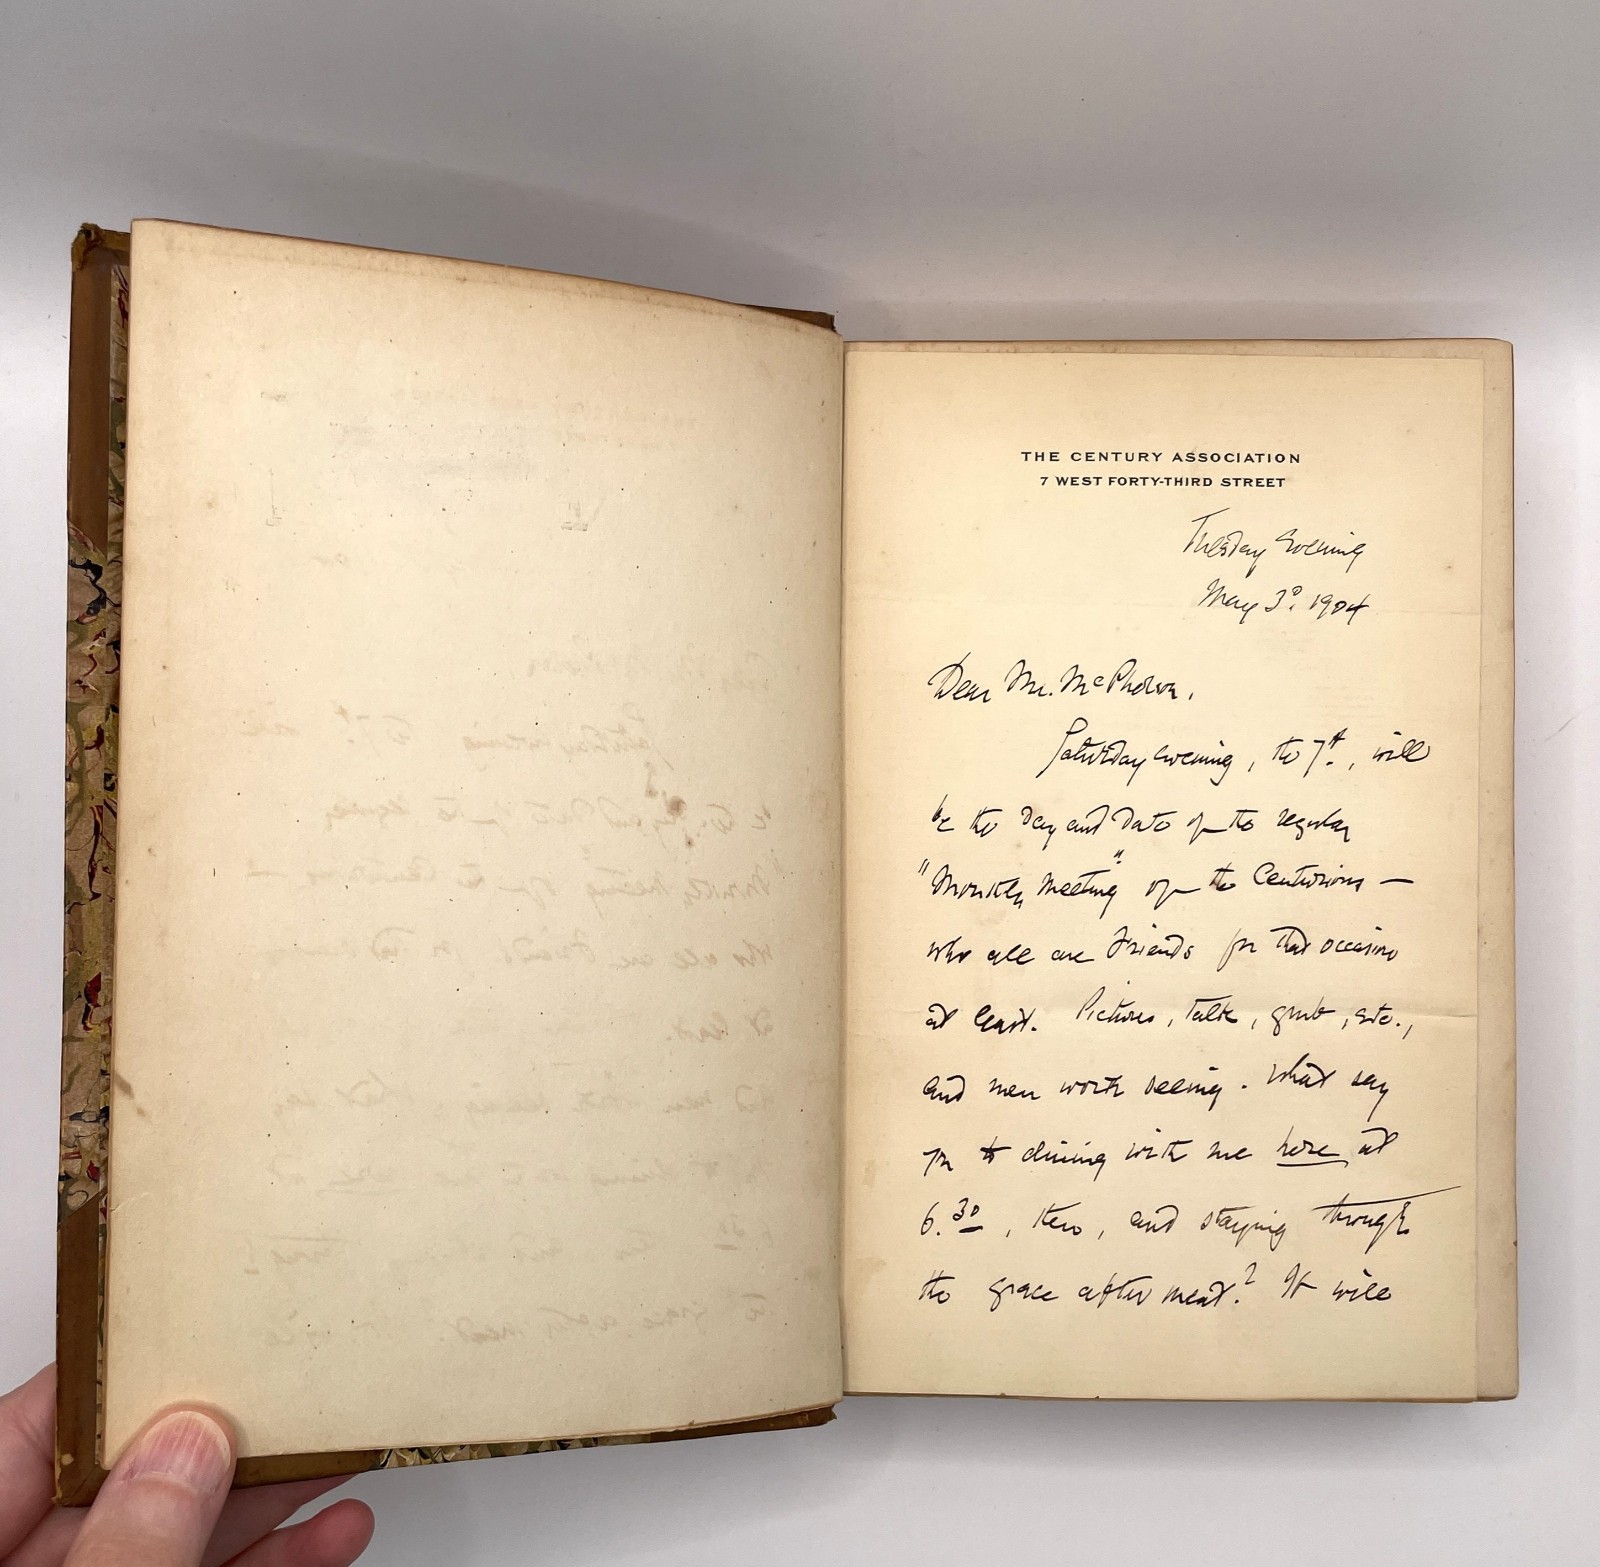 THE CENTURY ASSOCIATION
7 WEST FORTY-THIRD STREET
Tuesday Evening
May 3ᵒ. 1904
Dear Mr. McPherson,
Saturday evening, the 7th., will
be the day and date of the regular
"Monthly Meeting" of the Centurions —
who all are friends for that occasion
at least. Pictures, talk, grub, etc.,
and men worth seeing. What say
you to dining with me here at
6.30, then, and staying through
the grace after meat? It will